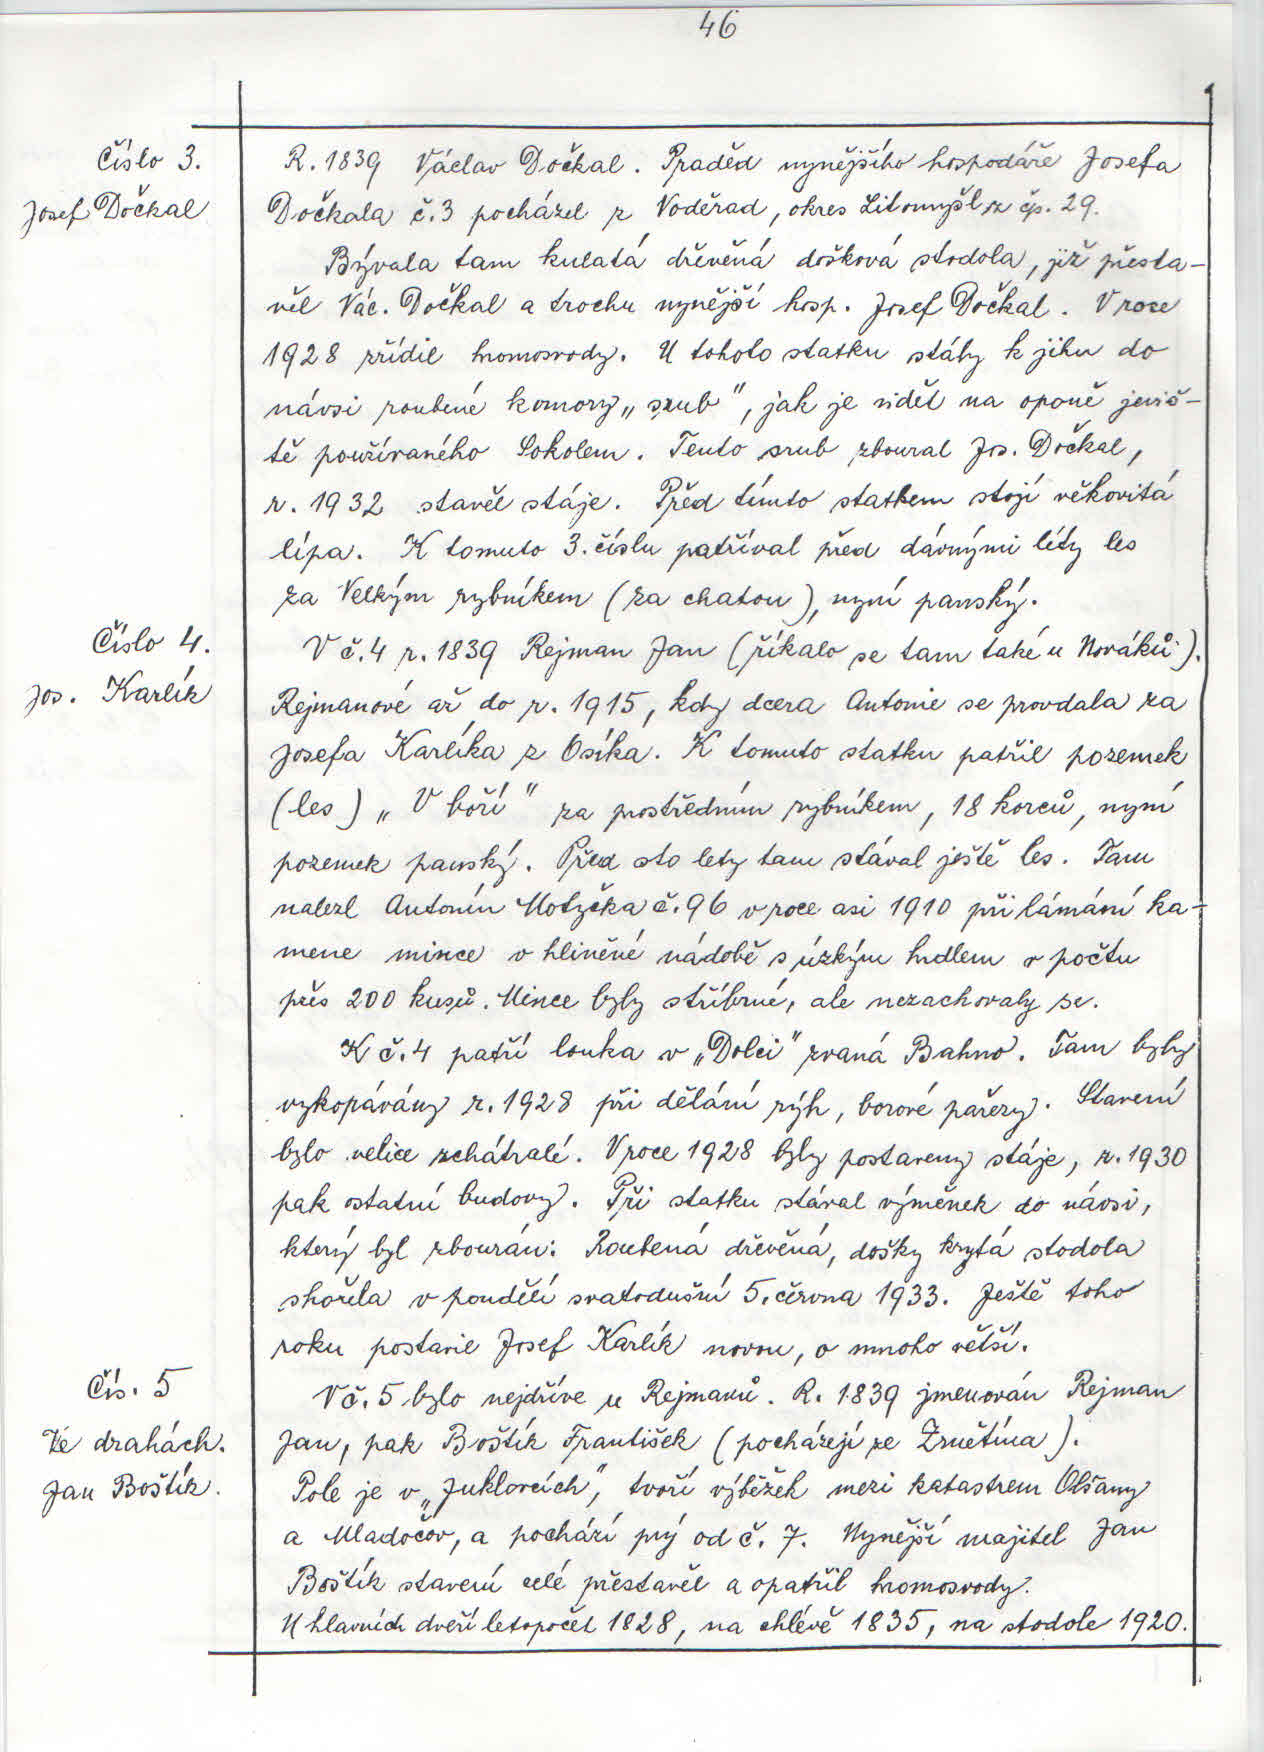 46
Číslo 3.
Josef Dočkal
R. 1839 Václav Dočkal. Praděd nynějšího hospodáře Josefa
Dočkala č. 3 pocházel z Voděrad, okres Litomyšl z čp. 29.
Bývala tam kulatá dřevěná došková stodola, již přesta-
věl Vác. Dočkal a trochu nynější hosp. Josef Dočkal. V roce
1928 zřídil hromosvody. U tohoto statku stály k jihu do
návsi roubené komory „srub", jak je vidět na oponě jeviš-
tě používaného Sokolem. Tento srub zboural Jos. Dočkal,
r. 1932 stavěl stáje. Před tímto statkem stojí věkovitá
lípa. K tomuto 3. číslu patříval před dávnými léty les
za Velkým rybníkem (za chatou), nyní panský.
Číslo 4.
Jos. Karlík
V č. 4 r. 1839 Rejman Jan (říkalo se tam také u Nováků).
Rejmanové až do r. 1915, kdy dcera Antonie se provdala za
Josefa Karlíka z Osíka. K tomuto statku patřil pozemek
(les) „V boří" za prostředním rybníkem, 18 korců, nyní
pozemek panský. Před sto lety tam stával ještě les. Tam
nalezl Antonín Motyčka č. 96 v roce asi 1910 při lámání ka-
mene mince v hliněné nádobě s úzkým hrdlem v počtu
přes 200 kusů. Mince byly stříbrné, ale nezachovaly se.
K č. 4 patří louka v „Dolci" zvaná Bahno. Tam byly
vykopávány r. 1928 při dělání rýh, borové pařezy. Stavení
bylo velice zchátralé. V roce 1928 byly postaveny stáje, r. 1930
pak ostatní budovy. Při statku stával výměnek do návsi,
který byl zbourán. Roubená dřevěná, došky krytá stodola
shořela v pondělí svatodušní 5. června 1933. Ještě toho
roku postavil Josef Karlík novou, o mnoho větší.
Čís. 5
Ve drahách.
Jan Boštík.
V č. 5 bylo nejdříve u Rejmanů. R. 1839 jmenován Rejman
Jan, pak Boštík František (pocházejí ze Zrnětína).
Pole je v „Juklovcích", tvoří výběžek mezi katastrem Olšany
a Mladočov, a pochází prý od č. 7. Nynější majitel Jan
Boštík stavení celé přestavěl a opatřil hromosvody.
U hlavních dveří letopočet 1828, na chlévě 1835, na stodole 1920.